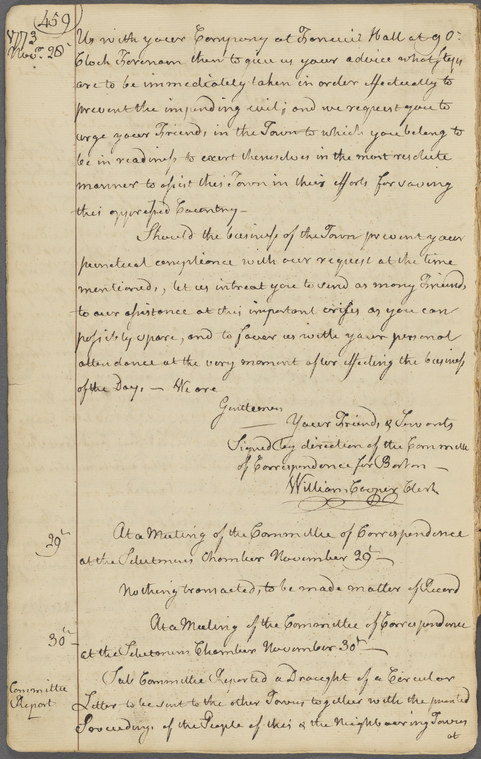 459
1773
Novr. 28
Us with your Company at Faneuil Hall at 9 O:
Clock Forenoon then to give us your advice what steps
are to be immediately taken in order effectually to
prevent the impending evil; and we request you to
urge your Friends in the Town to which you belong to
be in readiness to exert themselves in the most resolute
manner to assist this Town in their efforts for saving
this oppressed Country —
Should the business of the Town prevent your
punctual compliance with our request at the time
mentioned, let us intreat you to send as many Friends
to our assistance at this important crises as you can
possibly spare, and to favor us with your personal
attendance at the very moment after effecting the business
of the Day, — We are
Gentlemen
Your Friends & Servants
Signed by direction of the Committee
of Correspondence for Boston —
William Cooper Clerk
29
At a Meeting of the Committee of Correspondence
at the Selectmens Chamber November 29 —
Nothing transacted, to be made matter of Record
30
At a Meeting of the Committee of Correspondence
at the Selectmens Chamber November 30 —
Committee
Report
Sub Committee Reported a Draught of a Circular
Letter to be sent to the other Towns together with the printed
Proceedings of the People of this & the Neighbouring Towns
at